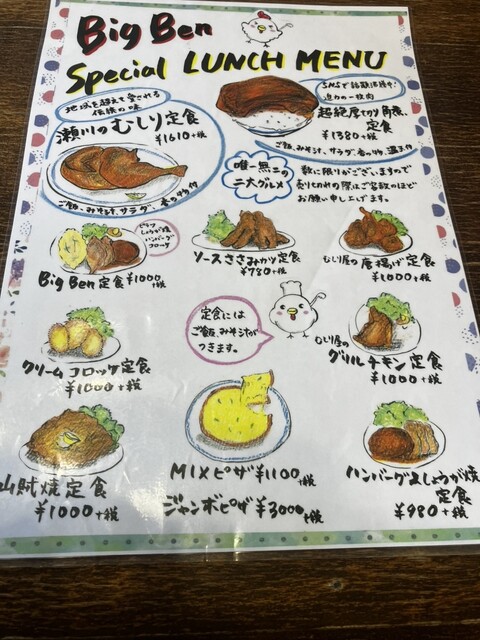 Big Ben
Special LUNCH MENU
地域を超えて愛される
伝統の味
瀬川のむしり定食
¥1610+税
ご飯、みそ汁、サラダ、香の物付
SNSで話題沸騰中!
迫力の一枚肉
超絶厚切り角煮
定食
¥1380+税
ご飯、みそ汁、サラダ、香の物、温玉付
唯一無二の
二大グルメ
数に限りがございますので
売り切れの際はご容赦のほど
お願い申し上げます。
ピラフ
しょうが焼
ハンバーグ
コロッケ
Big Ben定食¥1000+税
ソースささみカツ定食
¥780+税
むしり屋の唐揚げ定食
¥1000+税
定食には
ご飯、みそ汁が
つきます。
クリームコロッケ定食
¥1000+税
むしり屋の
グリルチキン定食
¥1000+税
山賊焼定食
¥1000+税
MIXピザ¥1100+税
ジャンボピザ¥3000+税
ハンバーグ&しょうが焼
定食
¥980+税